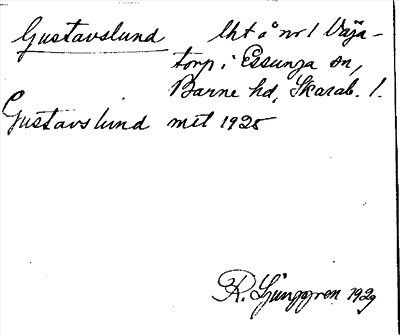 Gustavslund lht å nr 1 Väja-
torp i Essunga sn,
Barne hd, Skarab. l.
Gustavslund mtl 1925
R. Ljunggren 1929